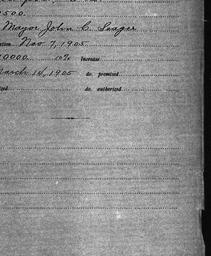 500.
Mayor John C. Seager
Nov. 7, 1905.
0000. 10% Increase
March 14, 1905 do. promised
do. authorized